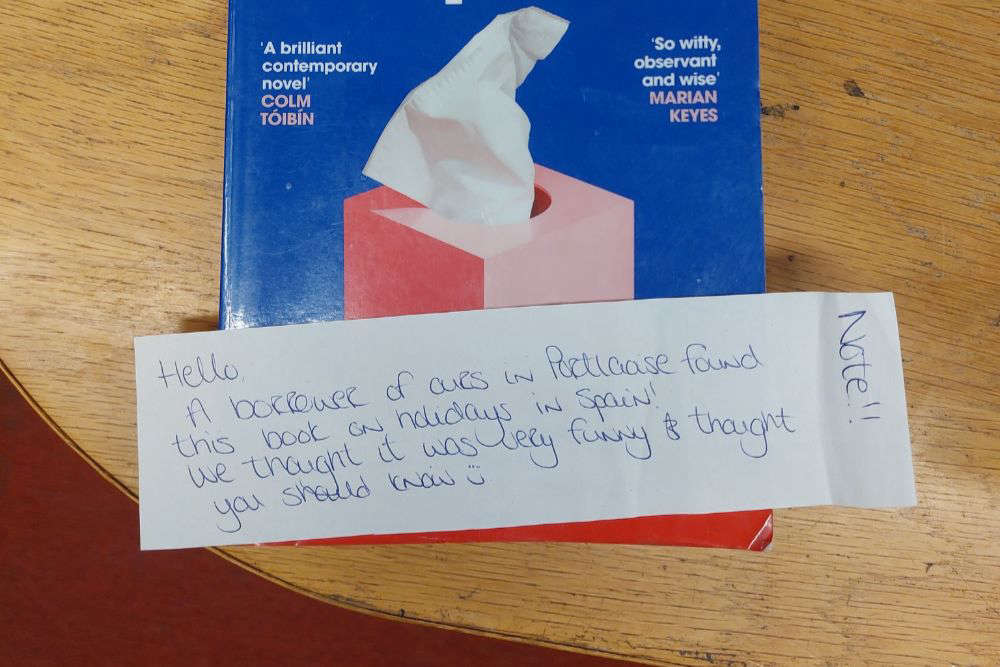 'A brilliant
contemporary
novel'
COLM
TÓIBÍN
'So witty,
observant
and wise'
MARIAN
KEYES
Hello,
A borrower of ours in Portlaoise found
this book on holidays in Spain!
we thought it was very funny & thought
you should know
Note!!